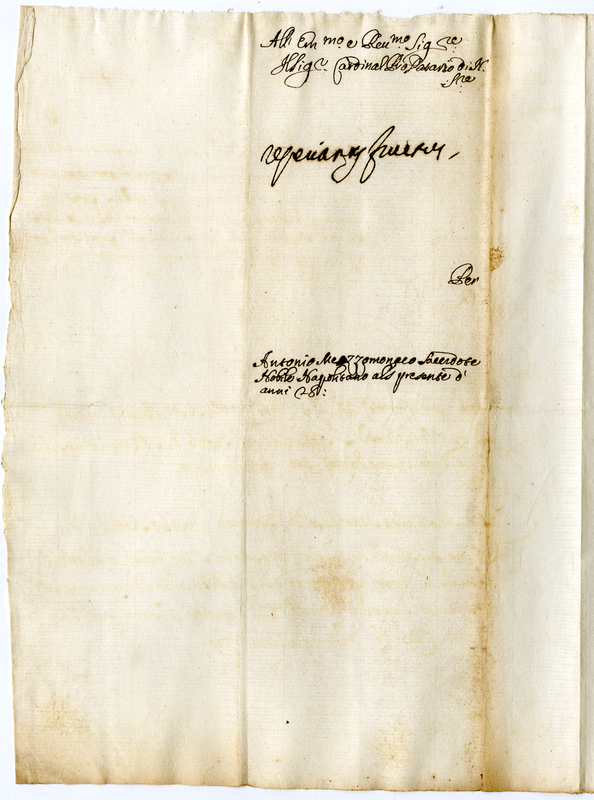 All' Em mo e Reu mo Sig re
Il Sig r. Cardinal Pro Datario di N.
Sre
Per
Antonio Mezzomonaco Sacerdote
Nobile Napolitano al presente d'
anni 28: